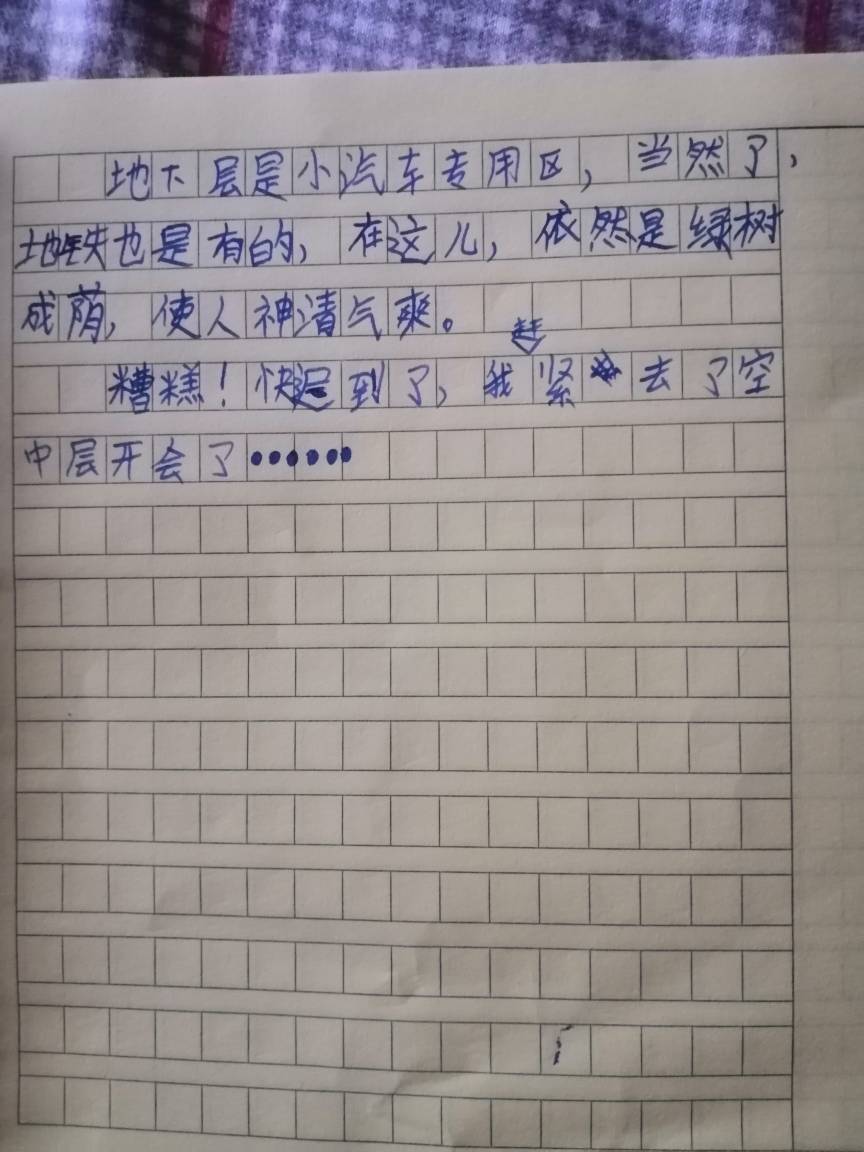 地下层是小汽车专用区，当然了，
地铁也是有的，在这儿，依然是绿树
成荫，使人神清气爽。
糟糕！快迟到了，我赶紧去了空
中层开会了……